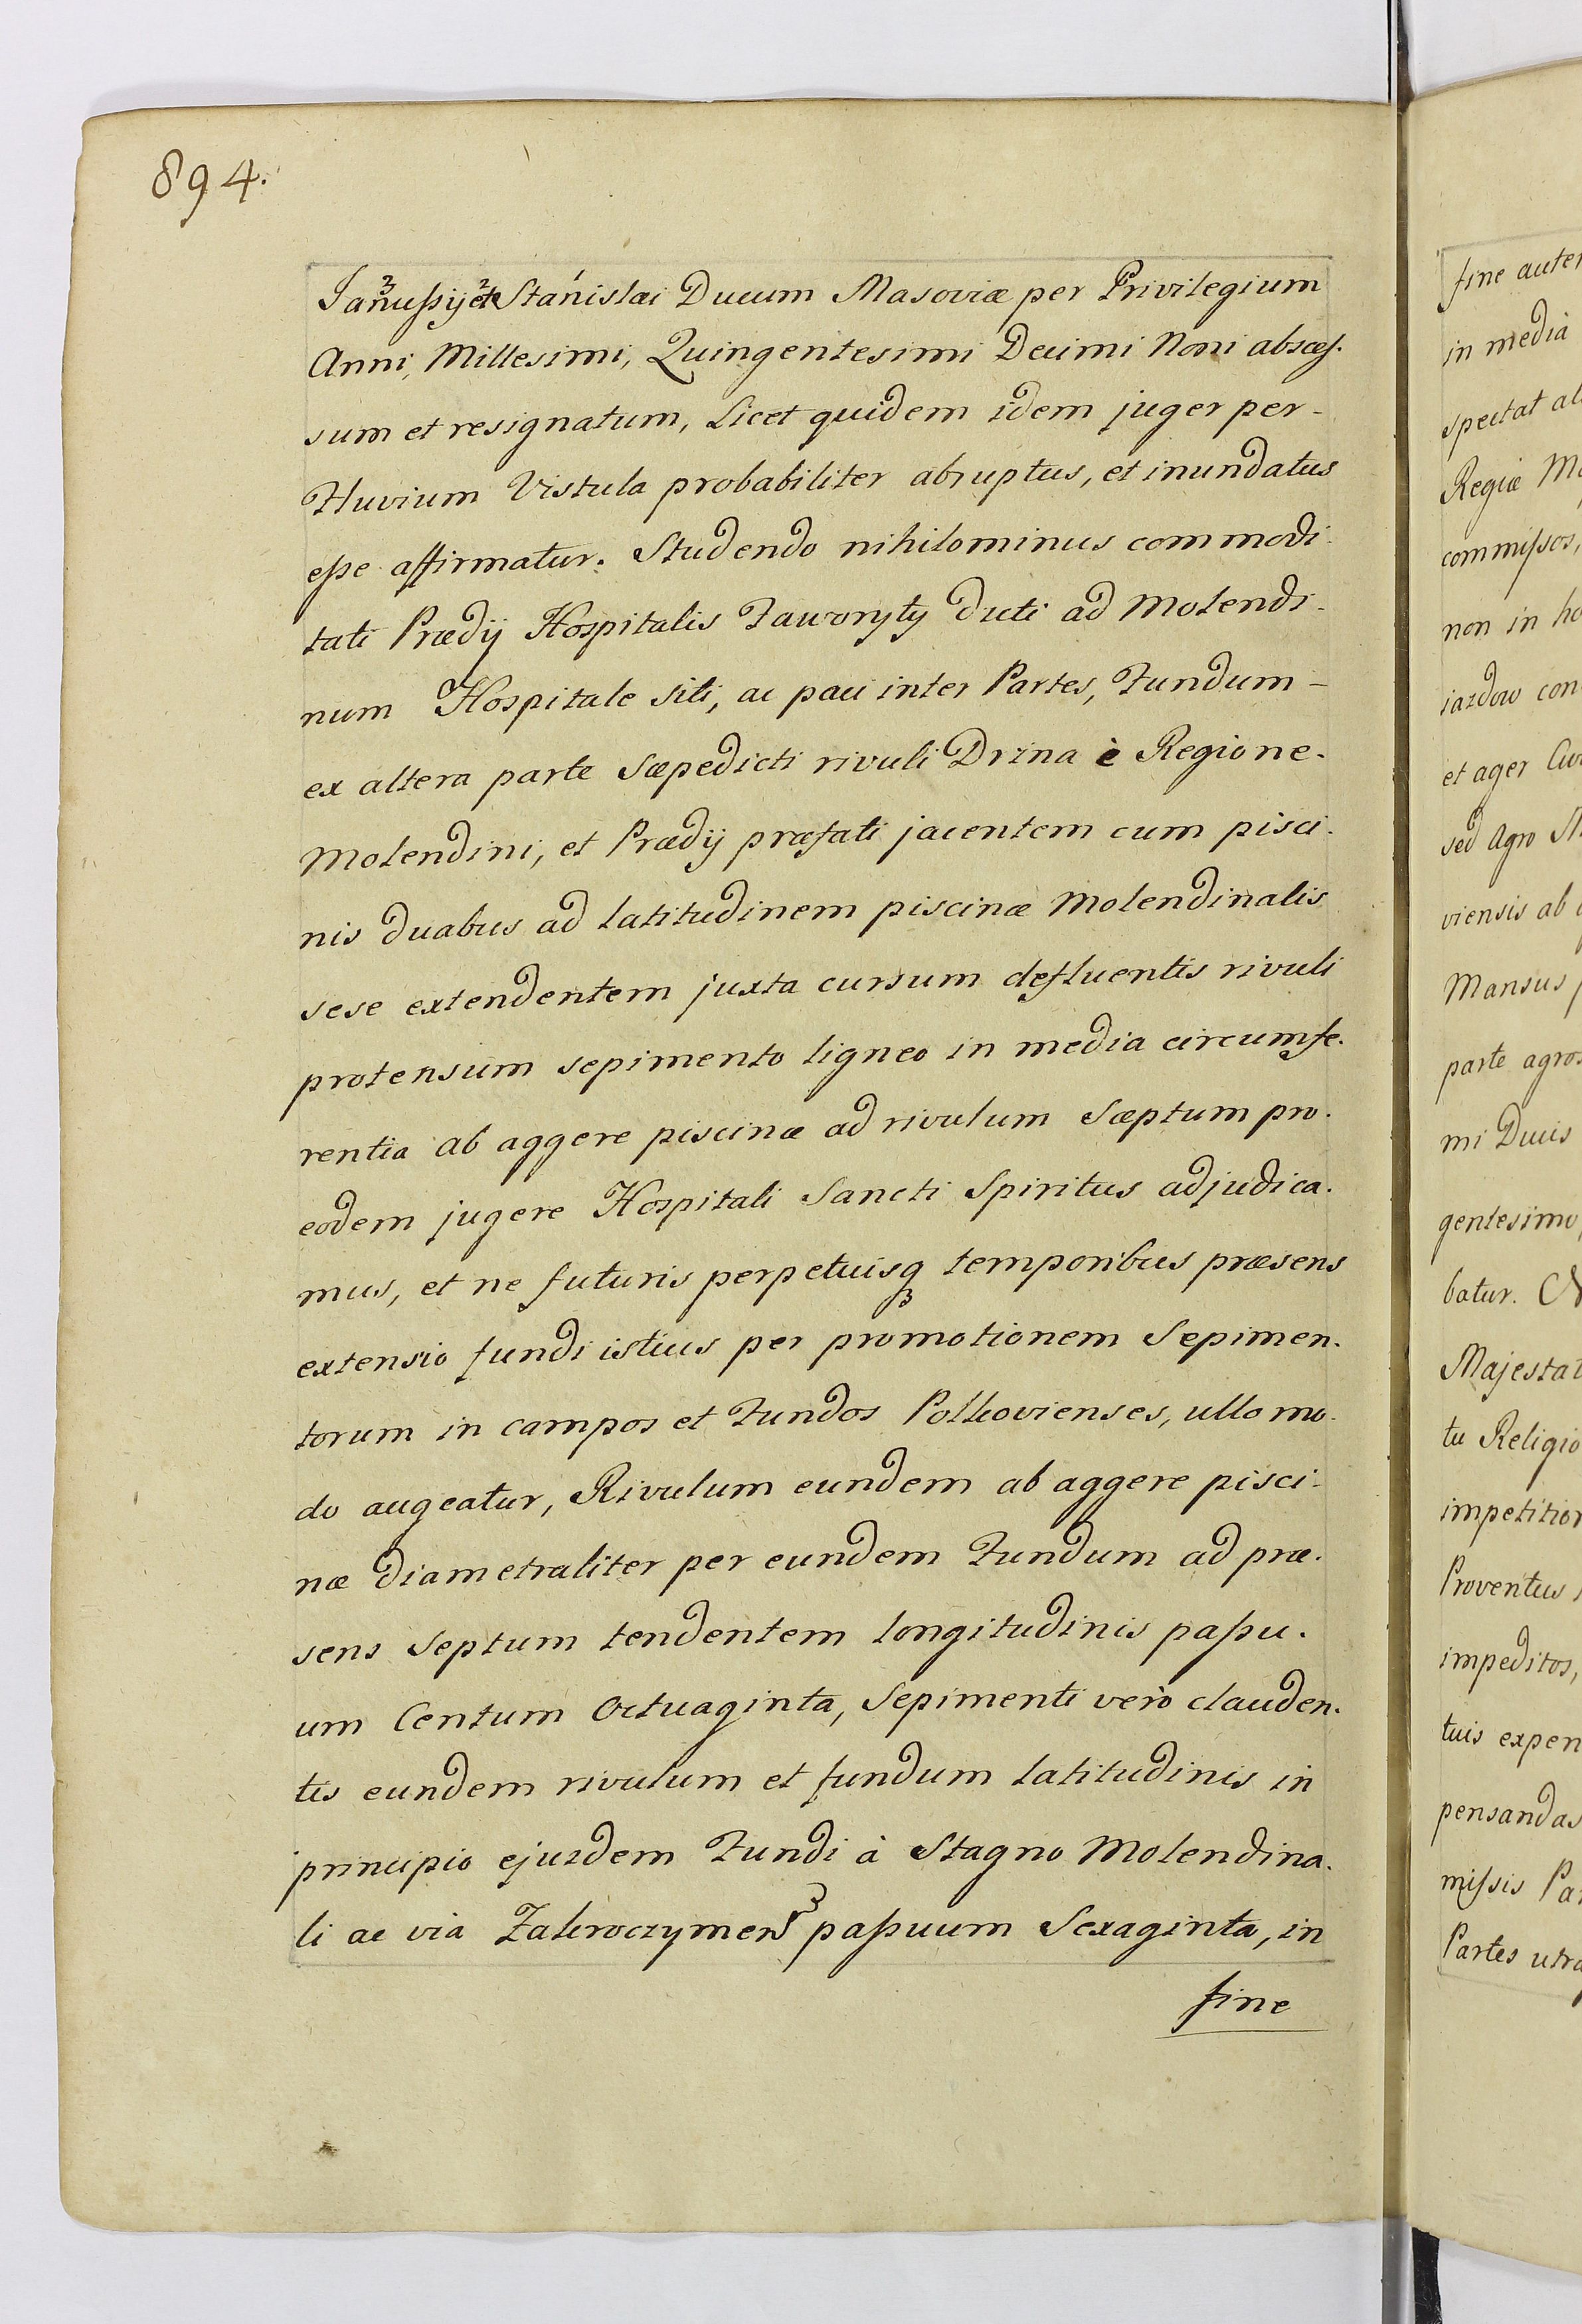 894.
Janussij et Stanislai Ducum Masoviæ per Privilegium
Anni, Millesimi, Quingentesimi Decimi Noni absces.
sum et resignatum, Licet quidem idem juger per-
Fluvium Vistula probabiliter abruptus, et inundatus
esse affirmatur. Studendo nihilominus commodi-
tati Prædij Hospitalis Faworyty dicti ad Molendi-
num Hospitale siti, ac paci inter Partes, Fundum-
ex altera parte Sæpedicti rivuli Drina è Regione-
Molendini, et Prædij præfati jacentem cum pisci-
nis duabus ad latitudinem piscinæ Molendinalis
sese extendentem juxta cursum defluentis rivuli
protensum sepimento ligneo in media circumfe-
rentia ab aggere piscinæ ad rivulum Sæptum pro-
eodem jugere Hospitali Sancti Spiritus adjudica-
mus, et ne futuris perpetuisq3 temporibus præsens
extensio fundi istius per promotionem Sepimen-
torum in campos et Fundos Polkovienses, ullo mo-
do augeatur, Rivulum eundem ab aggere pisci-
næ diametraliter per eundem Fundum ad præ-
sens Septum tendentem longitudinis passu-
um Centum Octuaginta, Sepimenti verò clauden-
tis eundem rivulum et fundum latitudinis in
principio ejusdem Fundi à Stagno Molendina-
li ac via Zakroczymens passuum Sexaginta, in
fine
fine autem
in mediâ
spectat
Regiæ
commissos,
non in
iazdow con
et ager
sed Agro
viensis ab
Mansus
parte agros
mi Ducis
gentesimo,
batur.
Majestat
tu Religio
impetition
Proventus
impeditos,
tuis expen
pensandas
missis
Partes utra